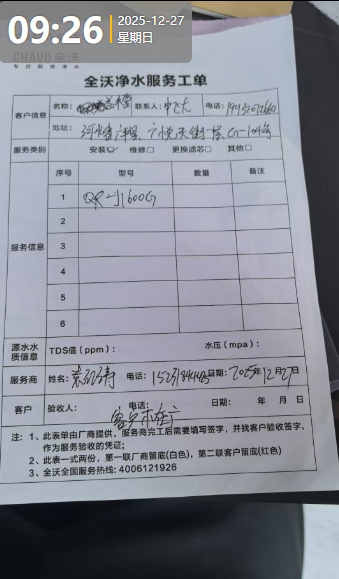 09:26
2025-12-27
星期日
CHAVO 全沃
专注厨房净水
全沃净水服务工单
客户信息 名称: 联系人: 电话:
地址:
服务类别 安装 维修□ 更换滤芯□ 其他□
服务信息
序号 型号 数量 备注
1 1600G
2
3
4
5
6
源水水质信息 TDS值（ppm）: 水压（mpa）:
服务商 姓名: 电话: 日期: 2025年12月27日
客户 验收人: 电话: 日期: 年 月 日
注: 1、此表单由厂商提供，服务商完工后需要填写签字，并找客户验收签字，
作为服务验收的凭证;
2、此表一式两份，第一联厂商留底(白色)，第二联客户留底(红色)
3、全沃全国服务热线: 4006121926